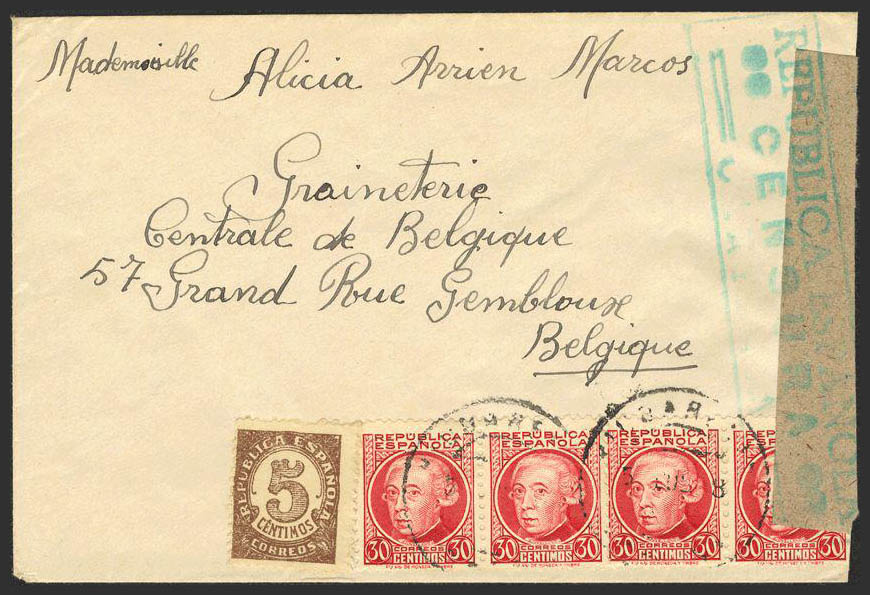 Mademoiselle Alicia Arrien Marcos
Graineterie
Centrale de Belgique
57 Grand Rue Gembloux
Belgique
REPUBLICA ESPAÑOLA
CENSURA
REPUBLICA ESPAÑOLA
5
CENTIMOS
CORREOS
REPUBLICA
ESPAÑOLA
CORREOS
30 CENTIMOS 30
REPUBLICA
ESPAÑOLA
CORREOS
30 CENTIMOS 30
REPUBLICA
ESPAÑOLA
CORREOS
30 CENTIMOS 30
REPUBLICA
CORREOS
30 CENTIMOS 30